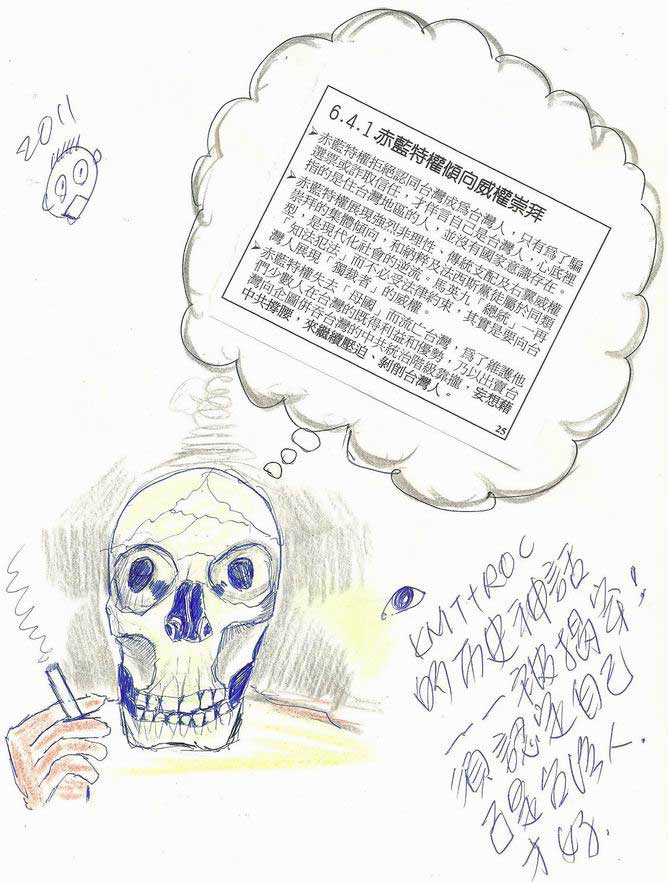 2011
6.4.1 赤藍特權傾向威權崇拜
赤藍特權拒絕認同台灣成為台灣人，只有為了騙
選票或詐取信任，才佯言自己是台灣人，心底裡
指的是住台灣地區的人，並沒有國家意識存在。
赤藍特權展現強烈非理性、傳統支配及右翼威權
崇拜的集體傾向，和納粹及法西斯黨徒屬於同類
型，是現代化社會的逆流。馬英九「總統」一再
「知法犯法」而不必受法律約束，其實是要向台
灣人展現「獨裁者」的威權。
赤藍特權失去「母國」而流亡台灣，為了維護他
們少數人在台灣的既得利益和優勢，乃以出賣台
灣向企圖併吞台灣的中共統治階級靠攏，妄想藉
中共撐腰，來繼續壓迫、剝削台灣人。
25
KMT+ROC
的历史神話
一一被揭穿！
須認定自己
就是台湾人．
才好．